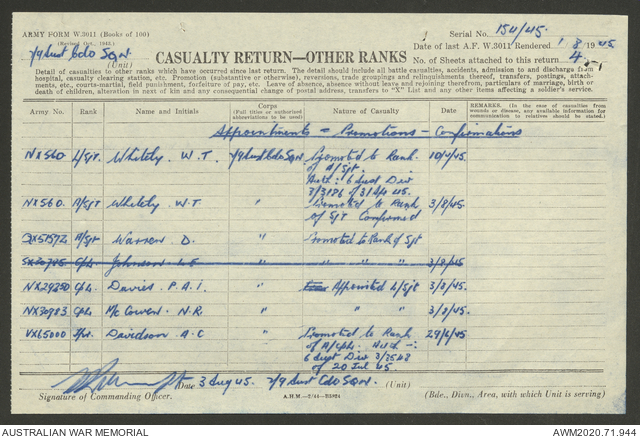 ARMY FORM W.3011 (Books of 100)
(Revised Oct., 1943.)
Serial No. 154/45.
2/9 Aust Cdo SQN.
(Unit)
CASUALTY RETURN—OTHER RANKS
Date of last A.F. W.3011 Rendered 1/8/1945
No. of Sheets attached to this return
Detail of casualties to other ranks which have occurred since last return. The detail should include all battle casualties, accidents, admission to and discharge from
hospital, casualty clearing station, etc. Promotion (substantive or otherwise), reversions, trade groupings and relinquishments thereof, transfers, postings, attach-
ments, etc., courts-martial, field punishment, forfeiture of pay, etc. Leave of absence, absence without leave and rejoining therefrom, particulars of marriage, birth or
death of children, alteration in next of kin and any consequential change of postal address, transfers to "X" List and any other items affecting a soldier's service.
Army No. Rank Name and Initials Corps (Full titles or authorized abbreviations to be used) Nature of Casualty Date of Casualty REMARKS. (In the case of casualties from wounds or disease, any available information for communication to relatives should be stated.)
Appointments - Promotions - Confirmations
NX560 L/Sjt Whitely W.T. 2/9 Aust Cdo SQN Promoted to Rank 10/4/45.
of A/Sjt.
Auth: 6 Aust Div
of 31 45.
NX560. A/Sjt Whitely W.T. " Promoted to Rank 3/8/45.
of Sjt Confirmed
A/Sjt Warren D. " Promoted to Rank of Sjt
SX20785 Cpl. Johnson L.E " " " " 3/8/45
NX29250 Cpl. Davies P.A.I. " Appointed L/Sjt 3/8/45.
NX30983 Cpl. McCowen N.R. " " " 3/8/45.
VX65000 Davidson A.C " Promoted to Rank 29/6/45.
of A/Cpl. Auth -:
6 Aust Div 2/3548
of 20 Jul 45.
Date 3 Aug 45. 2/9 Aust Cdo SQN. (Unit)
Signature of Commanding Officer.
A.H.M.—2/44—B5824
(Bde., Divn., Area, with which Unit is serving)
AUSTRALIAN WAR MEMORIAL
AWM2020.71.944